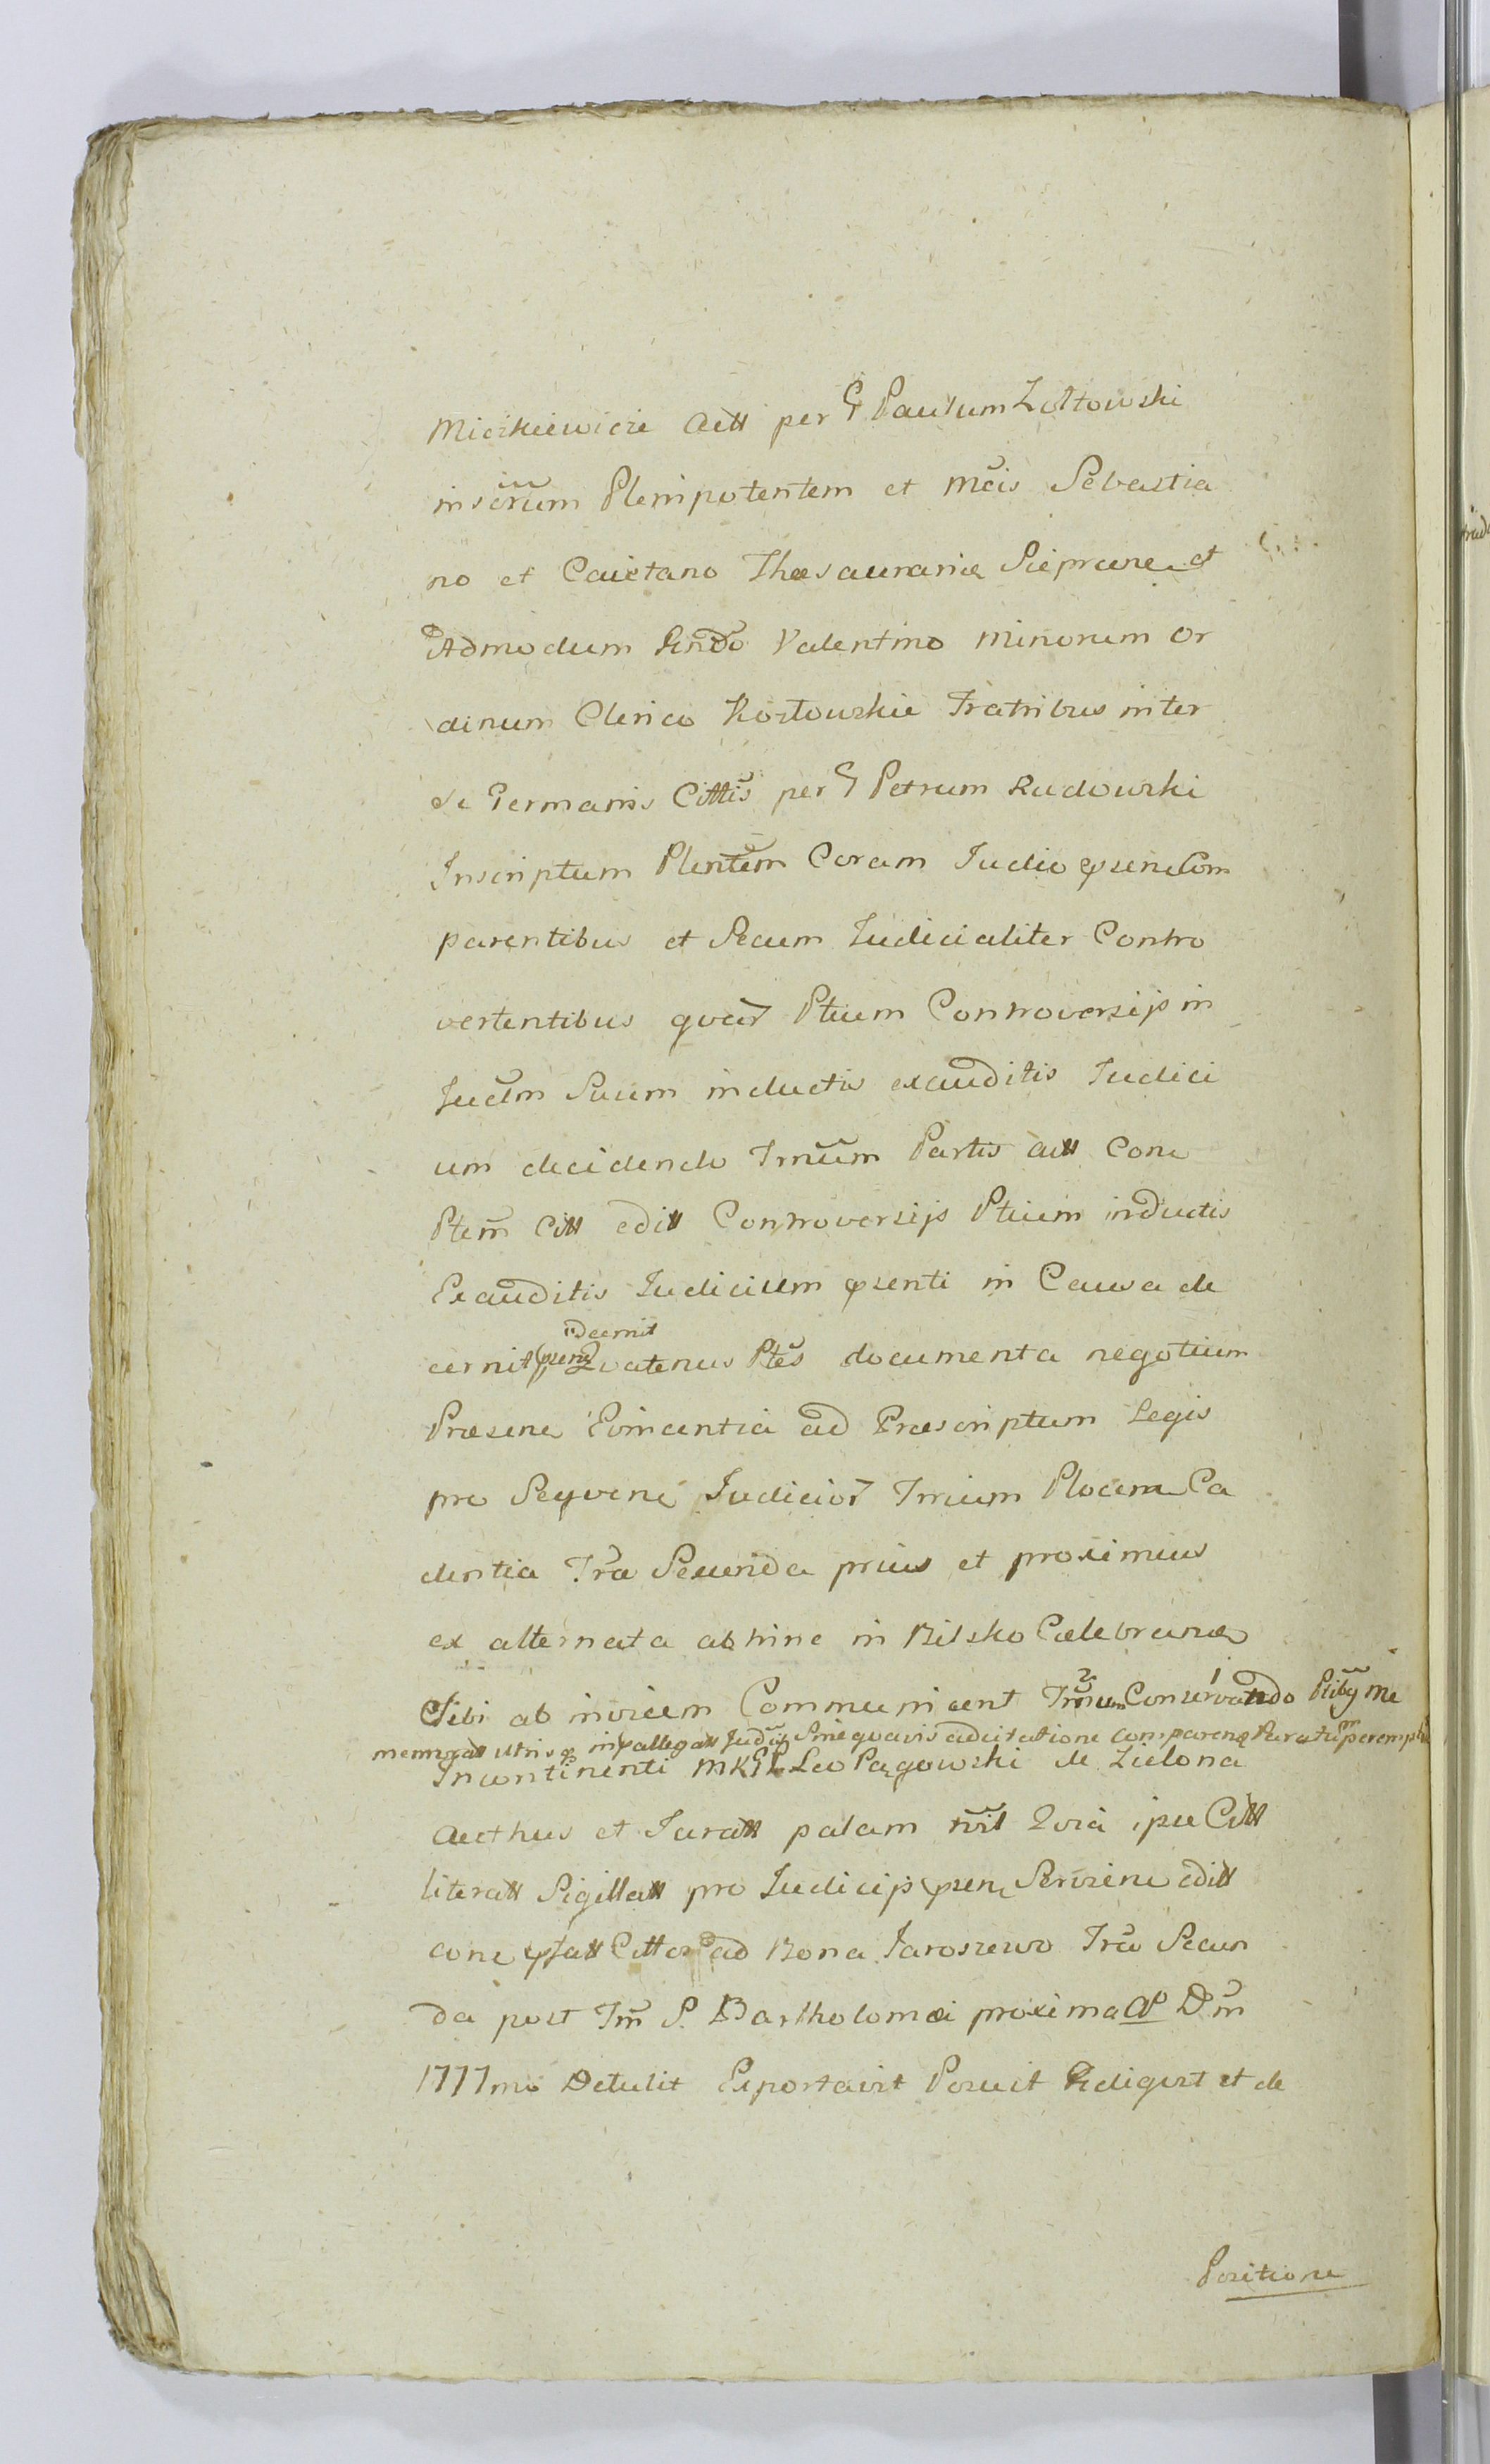 Mićzkiewicze Actt per G Paulum Zołtowski
inscrum Plenipotentem et Mcis Sebastia
no et Caietano Thesaurariæ Sieprcne et
Admodum Rndo Valentino Minorum Or
dinum Clerico Kozłowskie Fratribus inter
se Germanis Cittis per G Petrum Rudowski
Inscriptum Plentem Coram Iudio psene Com
parentibus et Secum Iudicialiter Contro
vertentibus quar Ptium Controversijs in
Iucm Suum inductis exauditis Iudici
um decidendo Trnum Partis actt Conc
Ptem Citt editt Controversijs Ptium inductis
Exauditis Iudicium psenti in Causa de
Decernit
cernit psens Quatenus Ptes documenta negotium
Præsene Evincentia ad Præscriptum Legis
pro Seqvene Iudicior Trrium Plocen Ca
dentia Fra Secunda prius et proximius
ex alternata abhinc in Bilsko Cælebrand
Sibi ab invicem Communicent Trnum Conservando Ptiby me
memorat utrisq in pallegatt Iudijs Sine quavis adcitatione comparend Paratu peremptm
Incontinenti MKGL Leo Pągowski de Zielona
Aecthus et Iuratt palam rvit Quia ipse Citt
literatt Sigillatt pro Iudicijs psen Serviene editt
conc psatt Cittos ad Bona Jaroszewo Fra Secun
da post Fm S. Bartholomæi proxima Ao Dm
1777mo Detulit Exportavit Posuit Redigist et de
Positione